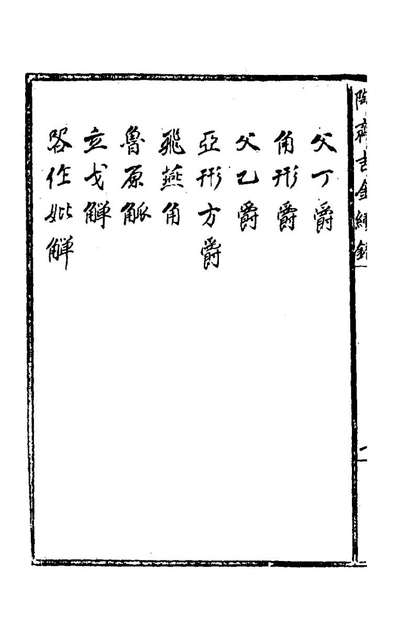 陶齋吉金續錄
一
父丁爵
角形爵
父乙爵
亞形方爵
飛燕角
魯原觚
立戈觶
客作妣觶